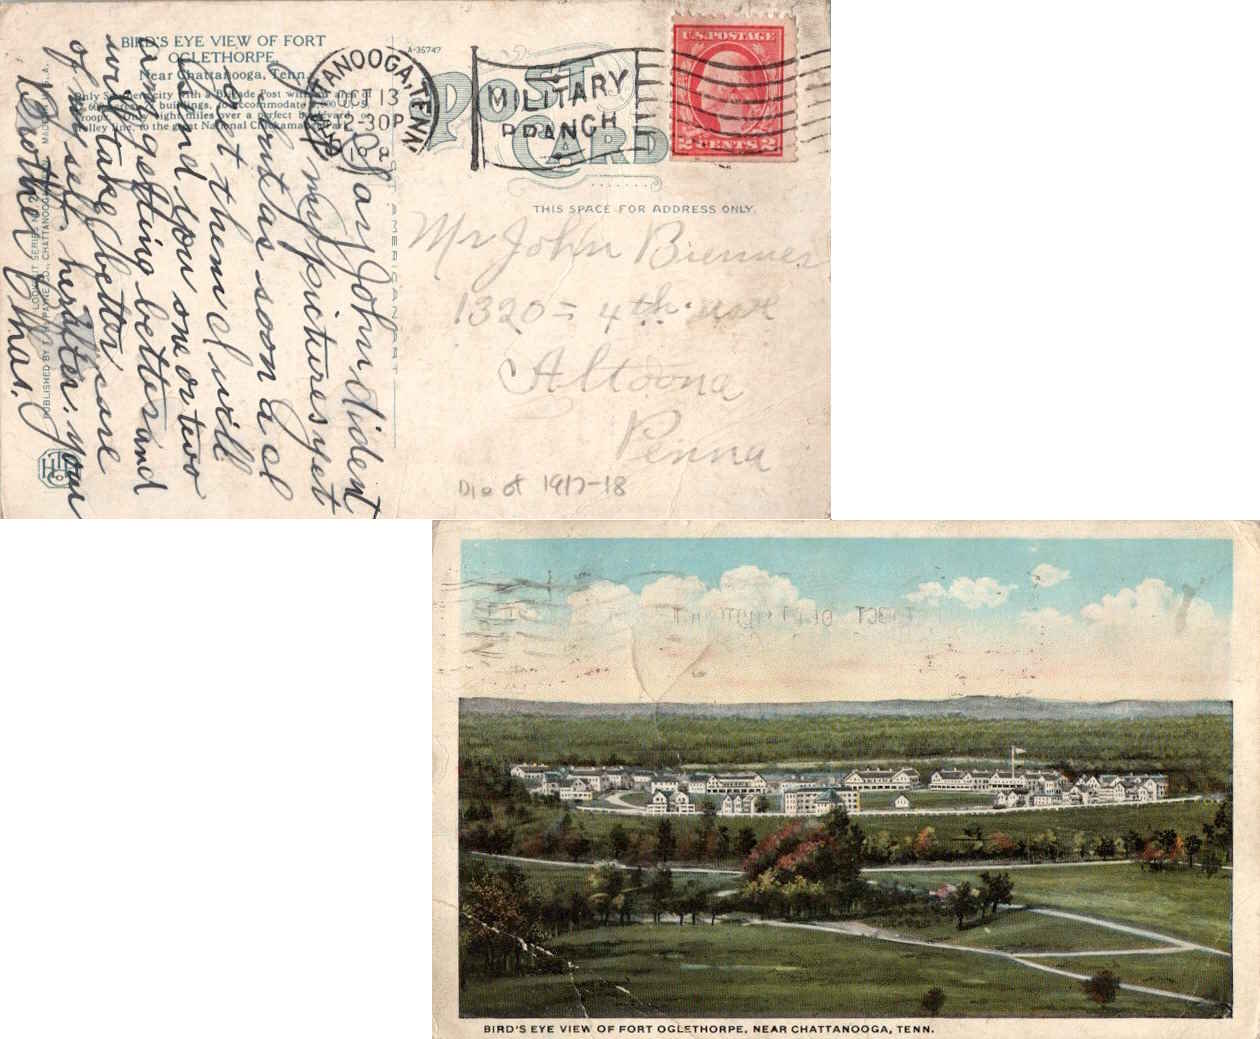 BIRD'S EYE VIEW OF FORT
OGLETHORPE,
Near Chattanooga, Tenn.
Only Southern city with a Brigade Post with an area of
buildings, to accommodate
Troops. Only eight miles over a perfect Boulevard or
Trolley line, to the great National Chickamauga Park.
A-35747
POST
CARD
CHATTANOOGA, TENN.
OCT 13
12-30P
MILITARY
BRANCH
U.S. POSTAGE
2 CENTS 2
THIS SPACE FOR ADDRESS ONLY.
Mr John Biennes
1320 = 4th. ave
Altoona
Penna
1917-18
Say John dident
get my pictures yet
but as soon as I
get them I will
send you one or two
am getting better and
will take better care
of my self. hereafter. your
Brother Chas.
PUBLISHED BY T. H. PAYNE CO., CHATTANOOGA, MADE IN U.S.A.
LOOKOUT SERIES
"AMERICAN ART"
BIRD'S EYE VIEW OF FORT OGLETHORPE, NEAR CHATTANOOGA, TENN.